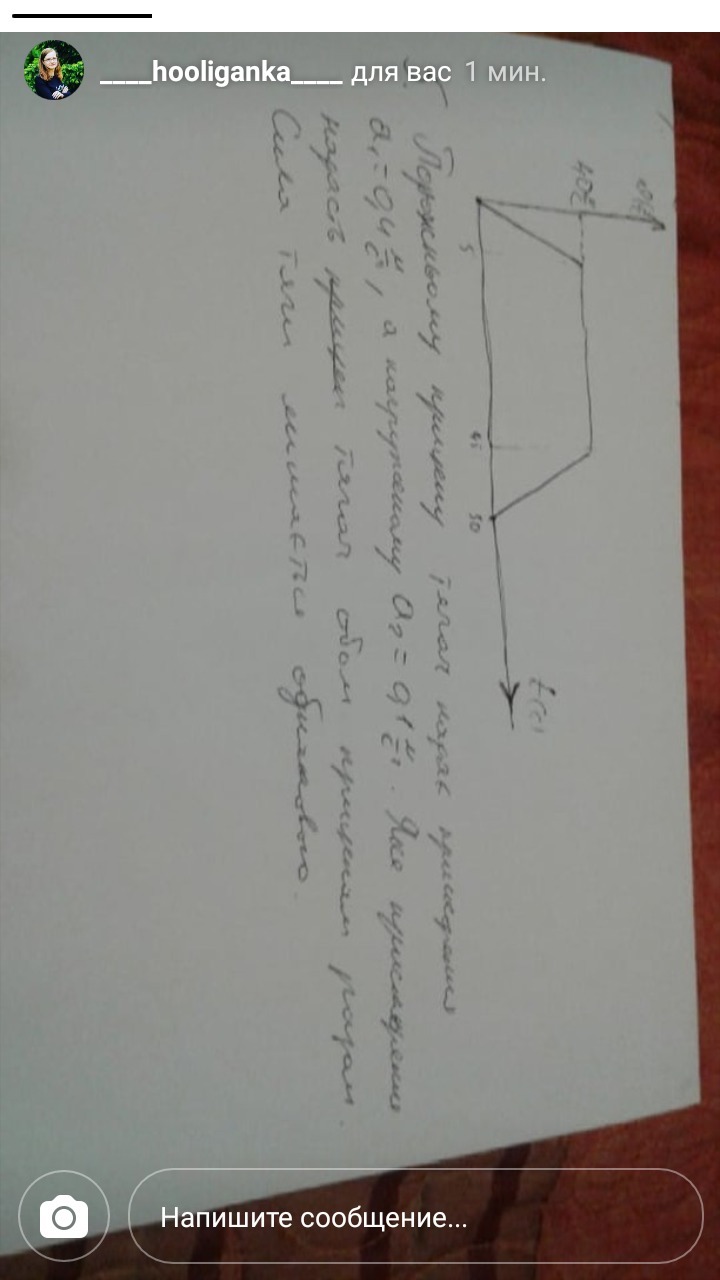 ____hooliganka____ для вас 1 мин.
40
5 45 50 t(c)
Порожньому прицепу тягач надає прискорення
a₁ = 0,4 м/с², а нагруженому a₂ = 0,1 м/с². Яке прискорення
надасть тягач обом прицепам разом.
Сила тяги лишається однакового.
Напишите сообщение...